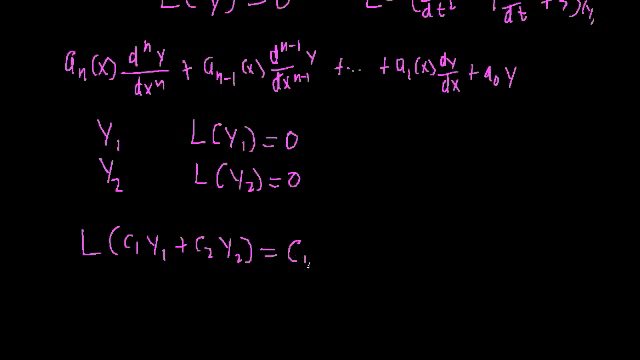 L(y) = 0
a_n(x) d^n y/dx^n + a_{n-1}(x) d^{n-1} y/dx^{n-1} + ... + a_1(x) dy/dx + a_0 y
y_1 L(y_1) = 0
y_2 L(y_2) = 0
L(c_1 y_1 + c_2 y_2) = c_1